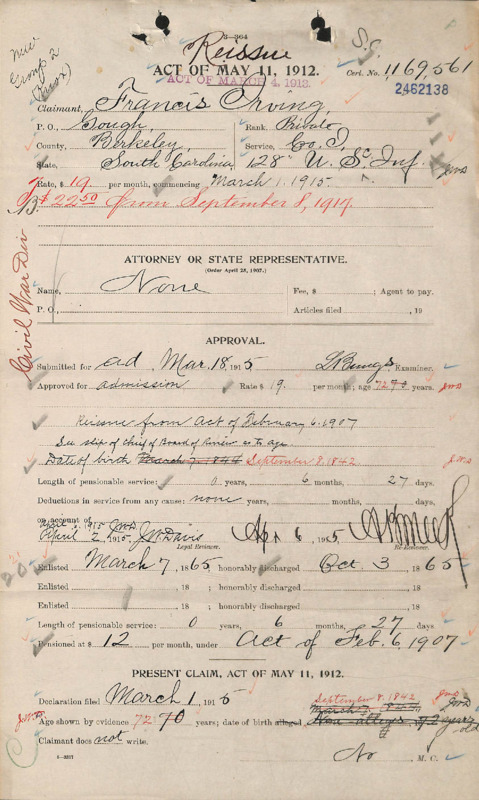 3-364
Reissue
ACT OF MAY 11, 1912.
ACT OF MARCH 4, 1913.
S.C.
Cert. No. 1169,561
2462138
New
Group 2
Claimant, Francis Irving
P. O., Gough,
Rank, Private
County, Berkeley,
Service, Co. I,
State, South Carolina,
128" U. S. C. Inf.
Rate, $ 19 per month, commencing March 1, 1915.
$22 50 from September 8, 1917.
Civil War Div
ATTORNEY OR STATE REPRESENTATIVE.
(Order April 25, 1907.)
Name, None
Fee, $ ; Agent to pay.
P. O.,
Articles filed , 19
APPROVAL.
Submitted for ad Mar. 18, 1915 Examiner.
Approved for admission Rate $ 19. per month; age 72 70 years. JWD
Reissue from act of February 6, 1907
See slip of Chief of Board of Review as to age.
Date of birth March 7, 1844 September 8, 1842. JWD
Length of pensionable service: 0 years, 6 months, 27 days.
Deductions in service from any cause: none years, months, days,
on account of
April 6, 1915 JWD
April 2, 1915. JW Davis
Legal Reviewer.
Apr 6, 1915
Re-Reviewer.
Enlisted March 7, 1865 honorably discharged Oct. 3 1865
Enlisted , 18 ; honorably discharged , 18
Enlisted , 18 ; honorably discharged , 18
Length of pensionable service: 0 years, 6 months, 27 days.
Pensioned at $ 12 per month, under Act of Feb. 6, 1907
PRESENT CLAIM, ACT OF MAY 11, 1912.
Declaration filed March 1, 1915
September 8, 1842 JWD
JWD Age shown by evidence 72 70 years; date of birth alleged
Claimant does not write.
No , M. C.